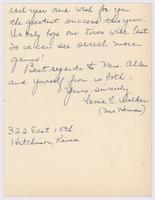 each year and wish for you
the greatest success this year.
We only hope our tires will last
so we can see several more
games!
Best regards to Mrs. Allen
and yourself from us both.
Yours sincerely,
E. Walker
(Mrs.
322 East 10th
Hutchinson, Kansas